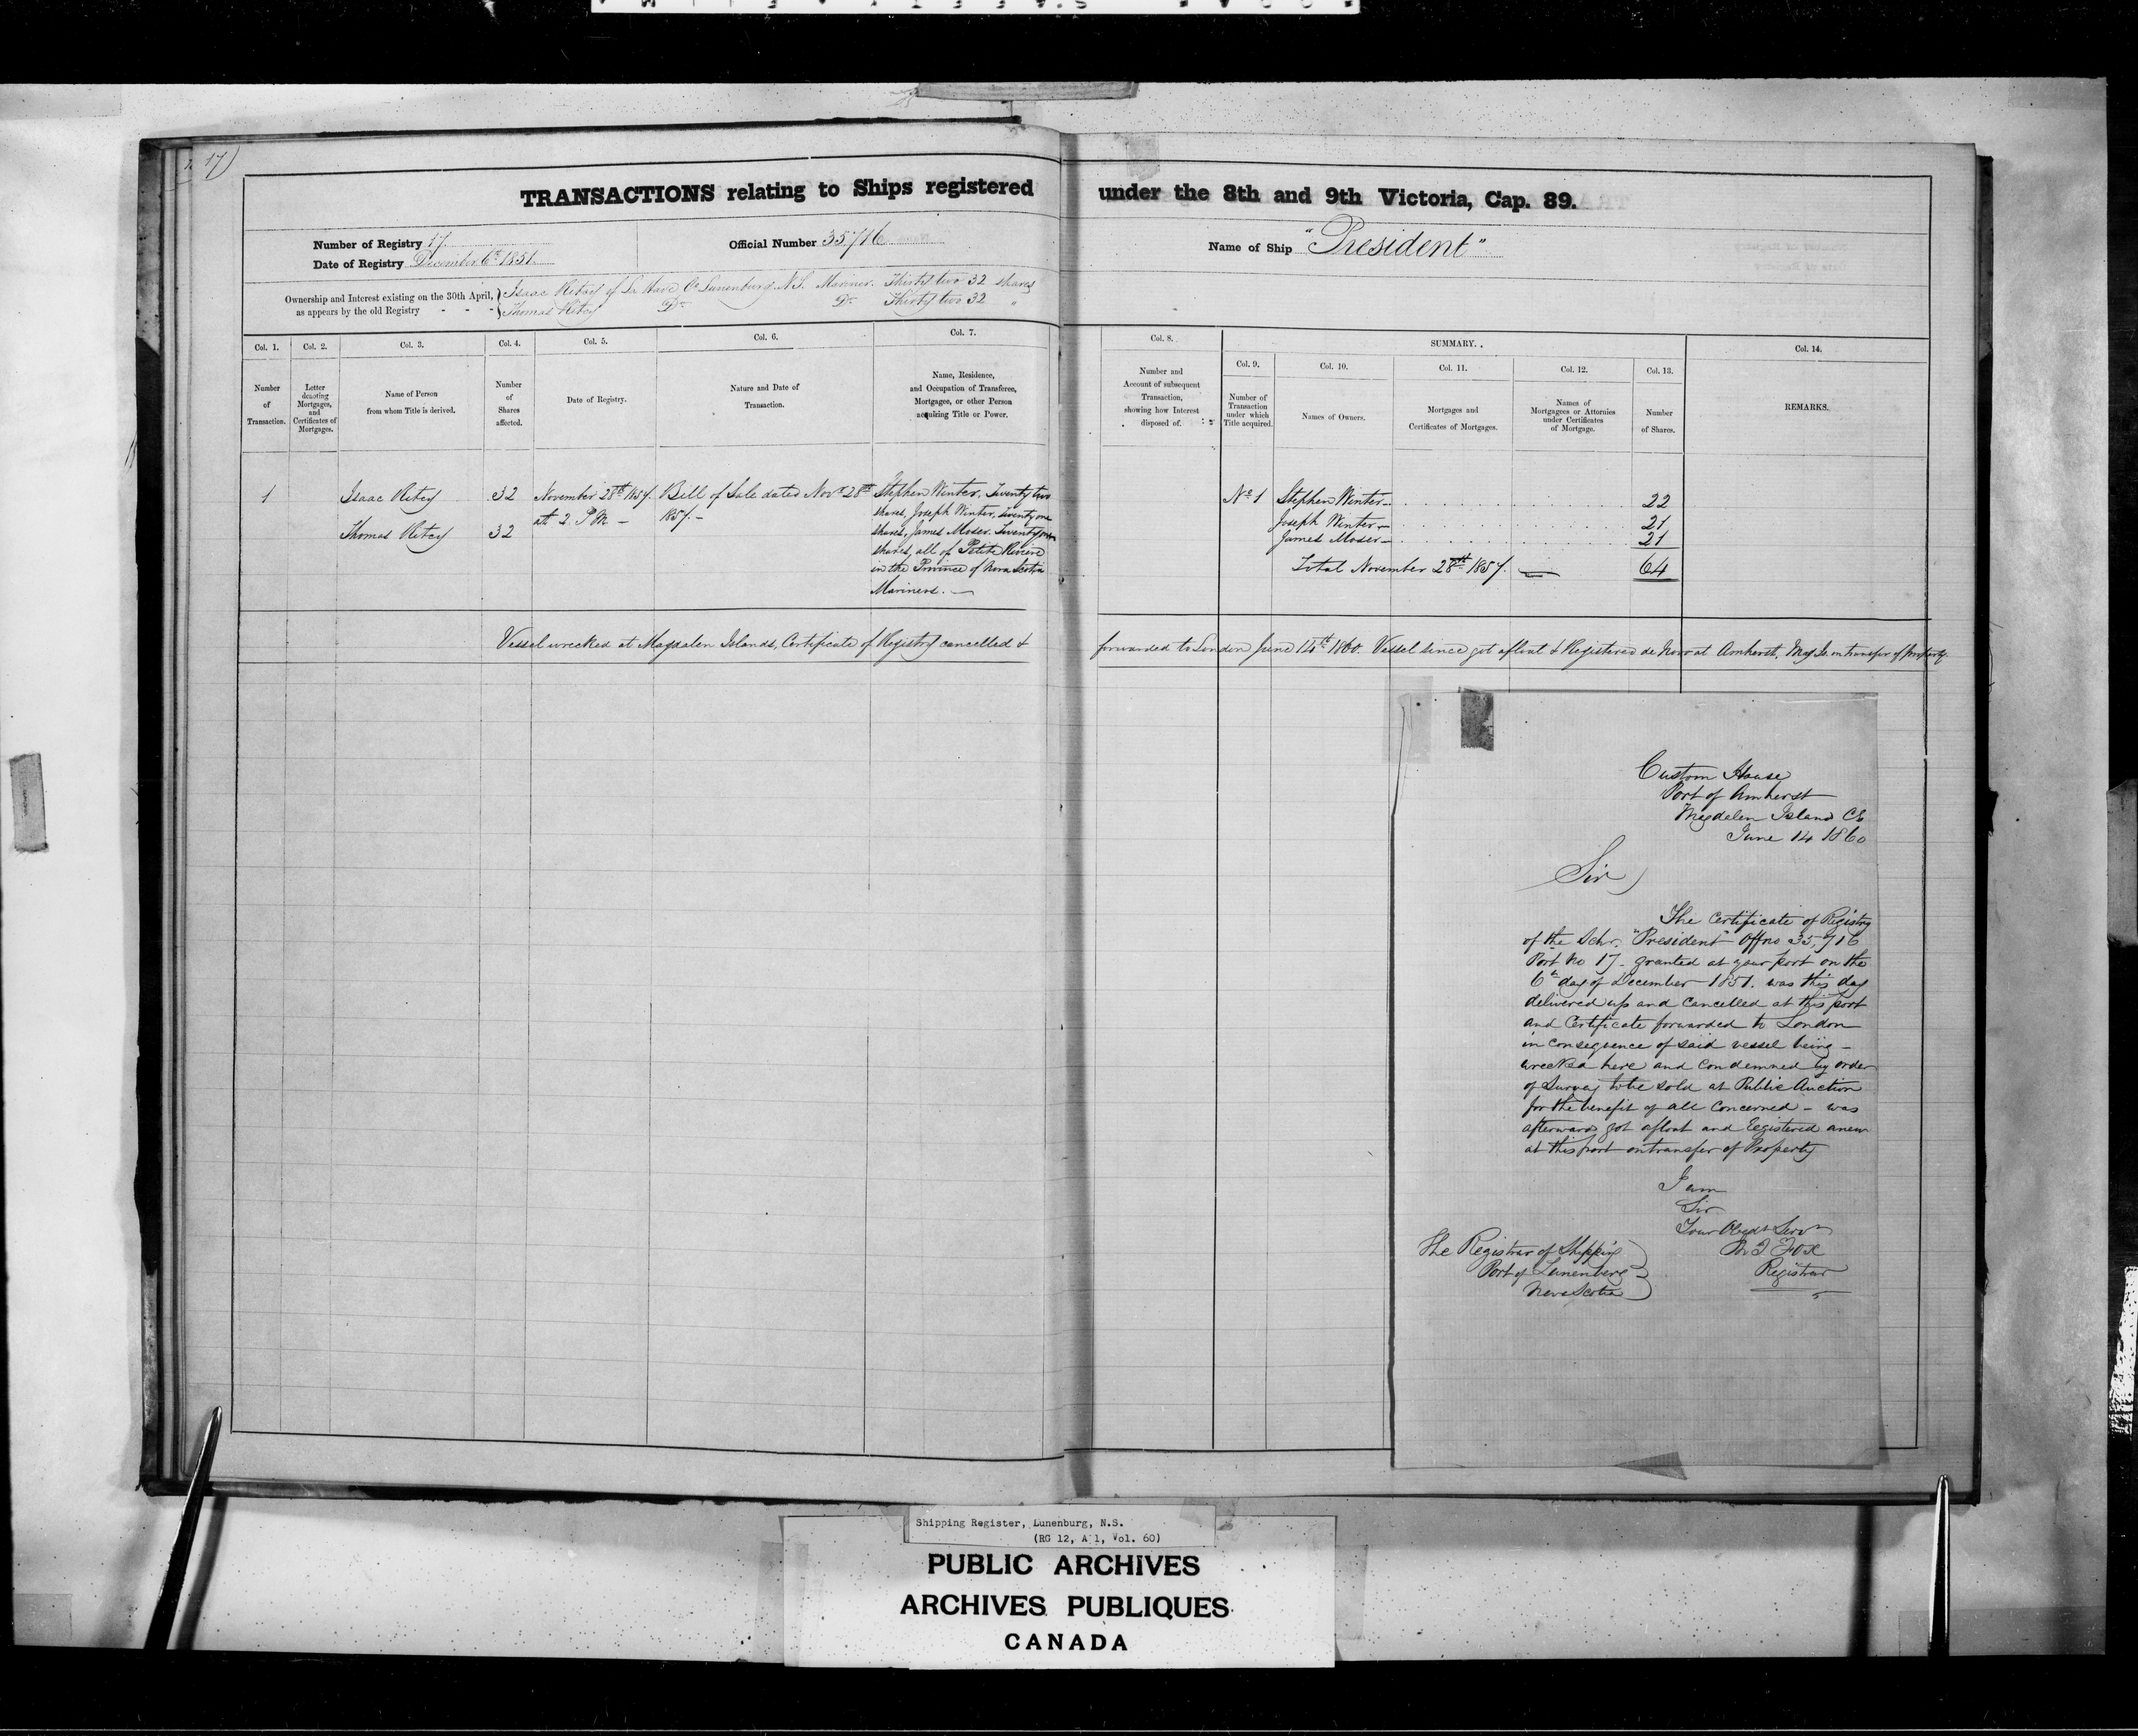 17)
TRANSACTIONS relating to Ships registered under the 8th and 9th Victoria, Cap. 89.
Number of Registry 17
Date of Registry December 6th 1851
Official Number 35,716
Name of Ship "President"
Ownership and Interest existing on the 30th April, as appears by the old Registry - - -
Isaac Ritcey of La Have Co Lunenburg N.S. Mariner. Thirty two 32 shares
Thomas Ritcey Do Do Thirty two 32 "
Col. 1. Number of Transaction.
Col. 2. Letter denoting Mortgages, and Certificates of Mortgages.
Col. 3. Name of Person from whom Title is derived.
Col. 4. Number of Shares affected.
Col. 5. Date of Registry.
Col. 6. Nature and Date of Transaction.
Col. 7. Name, Residence, and Occupation of Transferee, Mortgagee, or other Person acquiring Title or Power.
Col. 8. Number and Account of subsequent Transaction, showing how Interest disposed of.
SUMMARY.
Col. 9. Number of Transaction under which Title acquired.
Col. 10. Names of Owners.
Col. 11. Mortgages and Certificates of Mortgages.
Col. 12. Names of Mortgagees or Attornies under Certificates of Mortgage.
Col. 13. Number of Shares.
Col. 14. REMARKS.
1
Isaac Ritcey 32
Thomas Ritcey 32
November 28th 1857.
at 2. P M -
Bill of Sale dated Novr 28th
1857. -
Stephen Winter. Twenty two
shares, Joseph Winter, twenty one
shares, James Moser. Twenty one
shares, all of Petite Riviere
in the Province of Nova Scotia
Mariners. -
No 1 Stephen Winter - 22
Joseph Winter - 21
James Moser - 21
Total November 28th 1857. 64
Vessel wrecked at Magdalen Islands, Certificate of Registry cancelled & forwarded to London June 14th 1860. Vessel since got afloat & Registered de Novo at Amherst, Mag Is. on transfer of property.
Custom House
Port of Amherst
Magdalen Island CE
June 14 1860
Sir
The Certificate of Registry
of the Schr. "President" Offno 35,716
Port No 17 - granted at your port on the
6th day of December 1851. was this day
delivered up and cancelled at this port
and Certificate forwarded to London
in consequence of said vessel being -
wrecked here and condemned by order
of Survey to be sold at Public Auction
for the benefit of all concerned - was
afterward got afloat and Registered anew
at this port on transfer of Property
I am
Sir
Your Obedt Servt
Fox
Registrar
The Registrar of Shipping
Port of Lunenberg
Nova Scotia
Shipping Register, Lunenburg, N.S.
(RG 12, A 1, Vol. 60)
PUBLIC ARCHIVES
ARCHIVES PUBLIQUES
CANADA